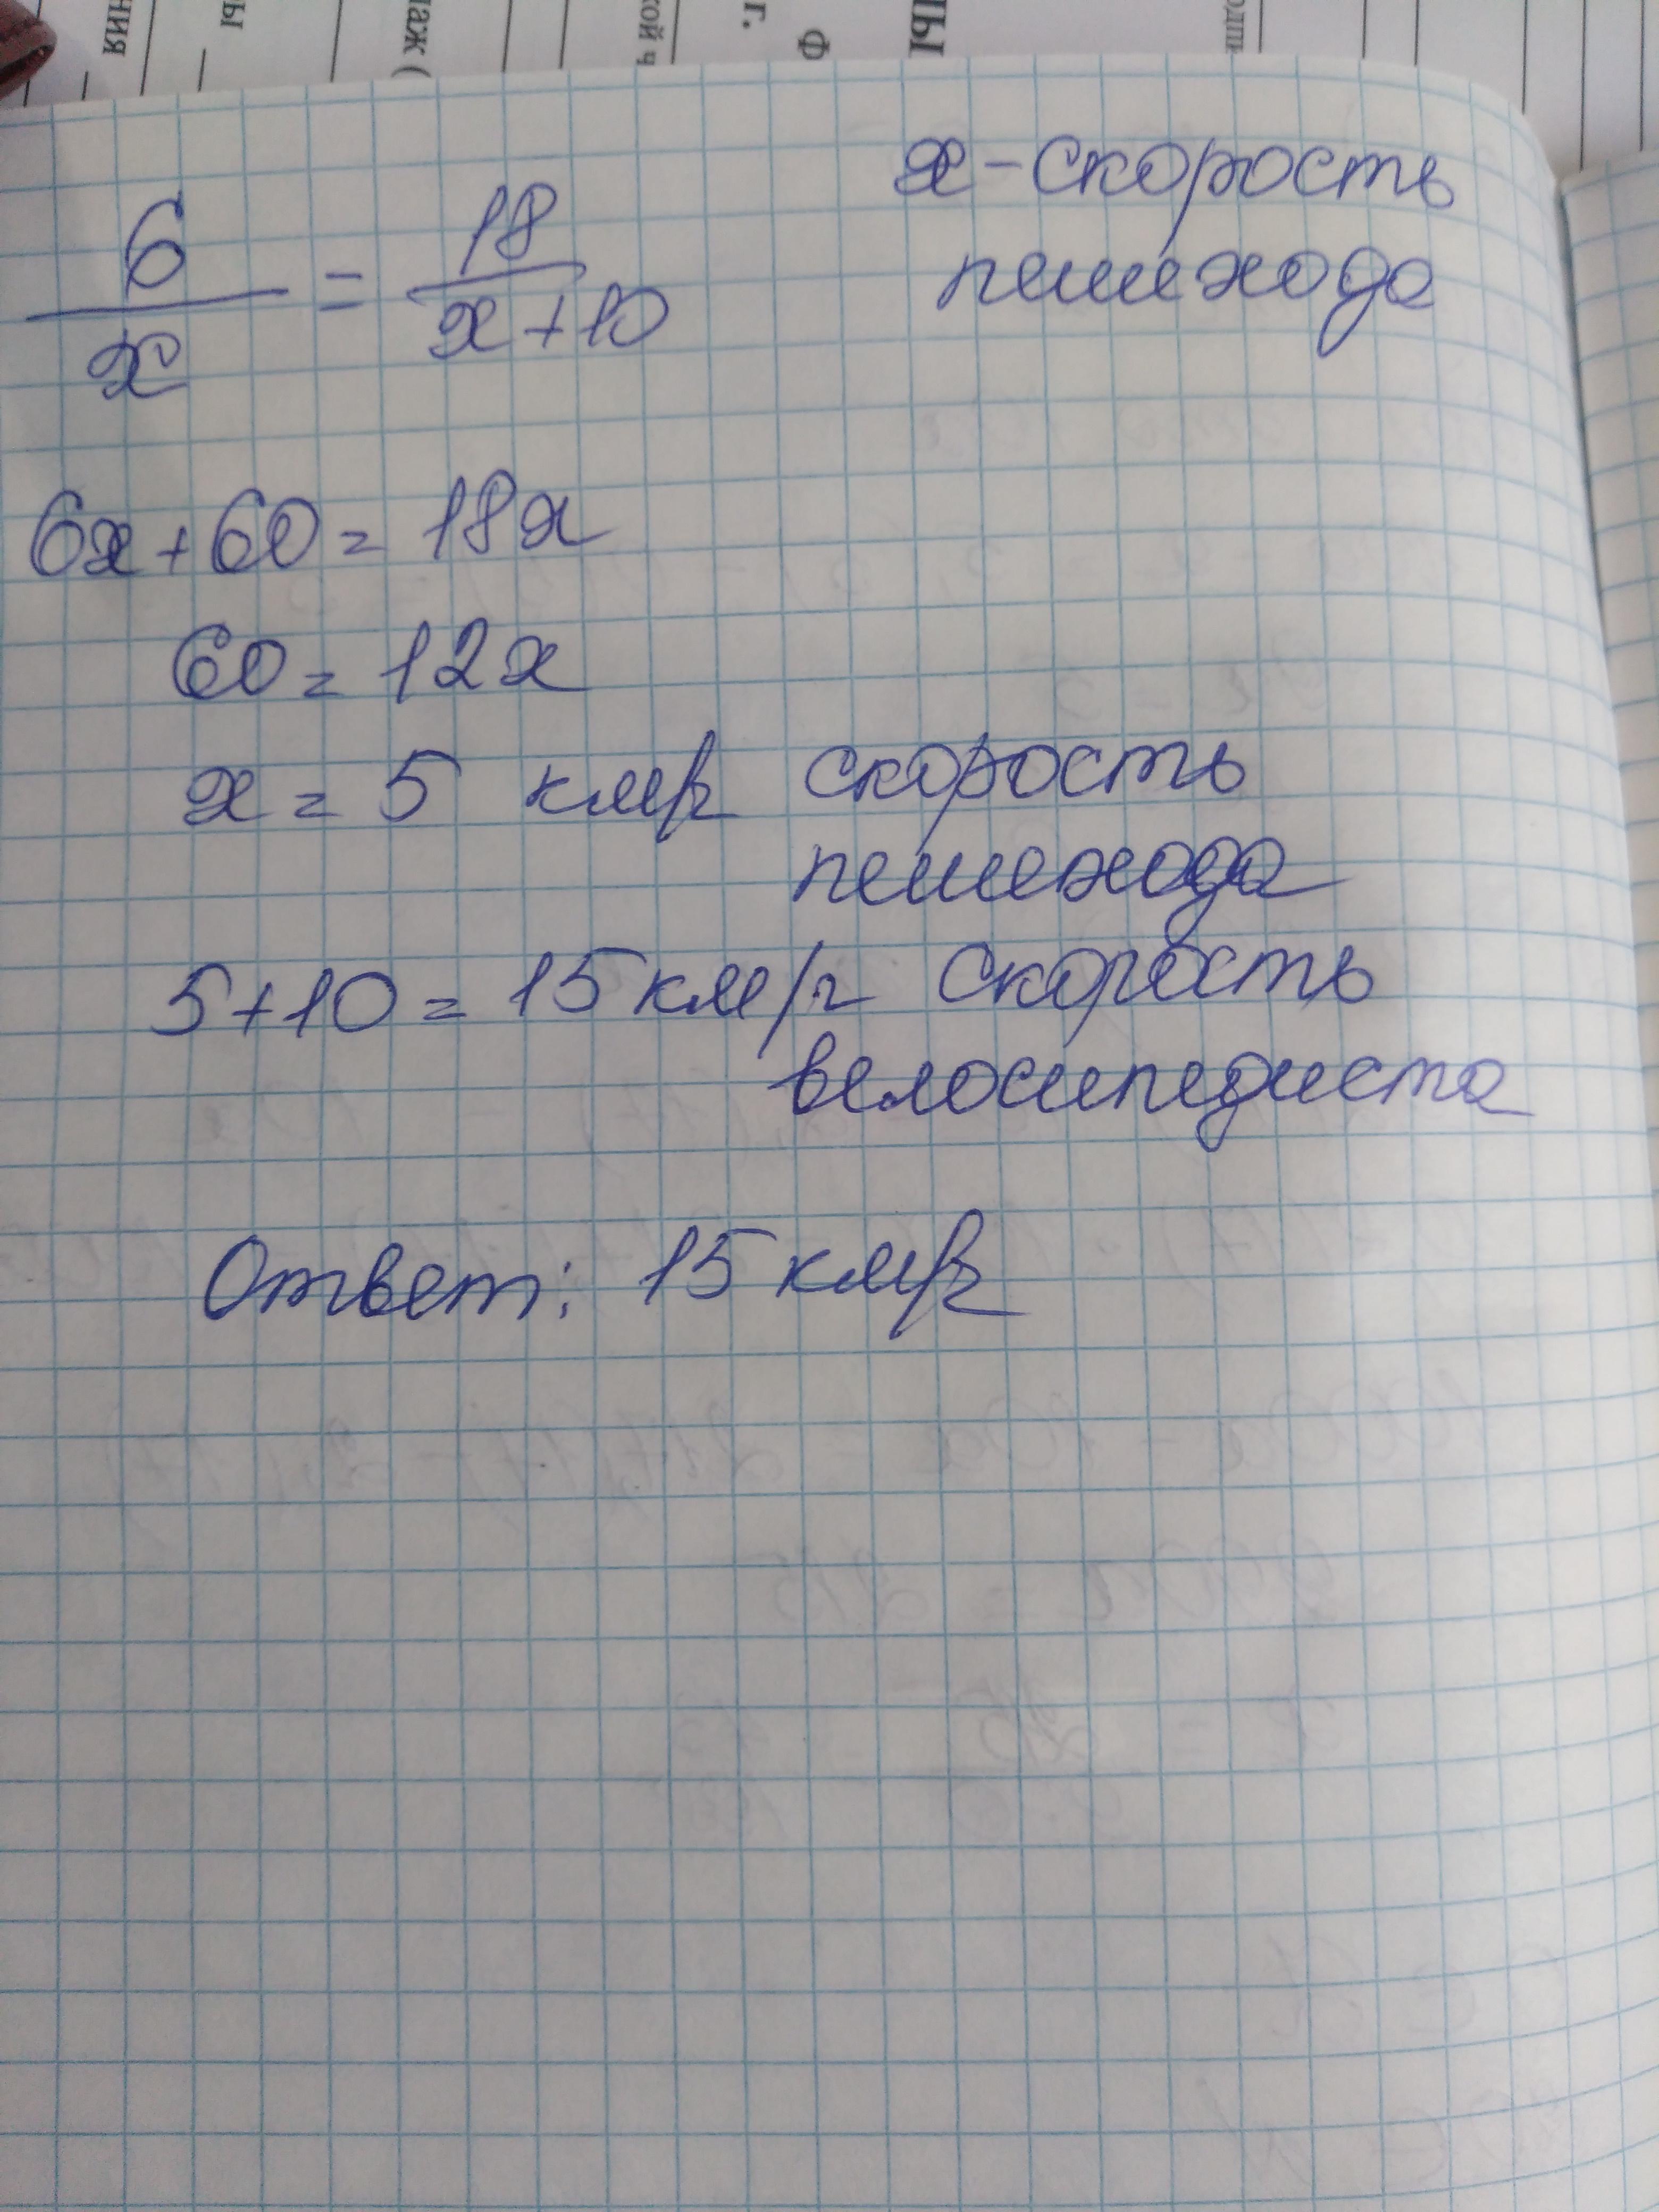 x - скорость
пешехода
6/x = 18/x+10
6x + 60 = 18x
60 = 12x
x = 5 км/ч скорость
пешехода
5+10 = 15 км/ч скорость
велосипедиста
Ответ: 15 км/ч